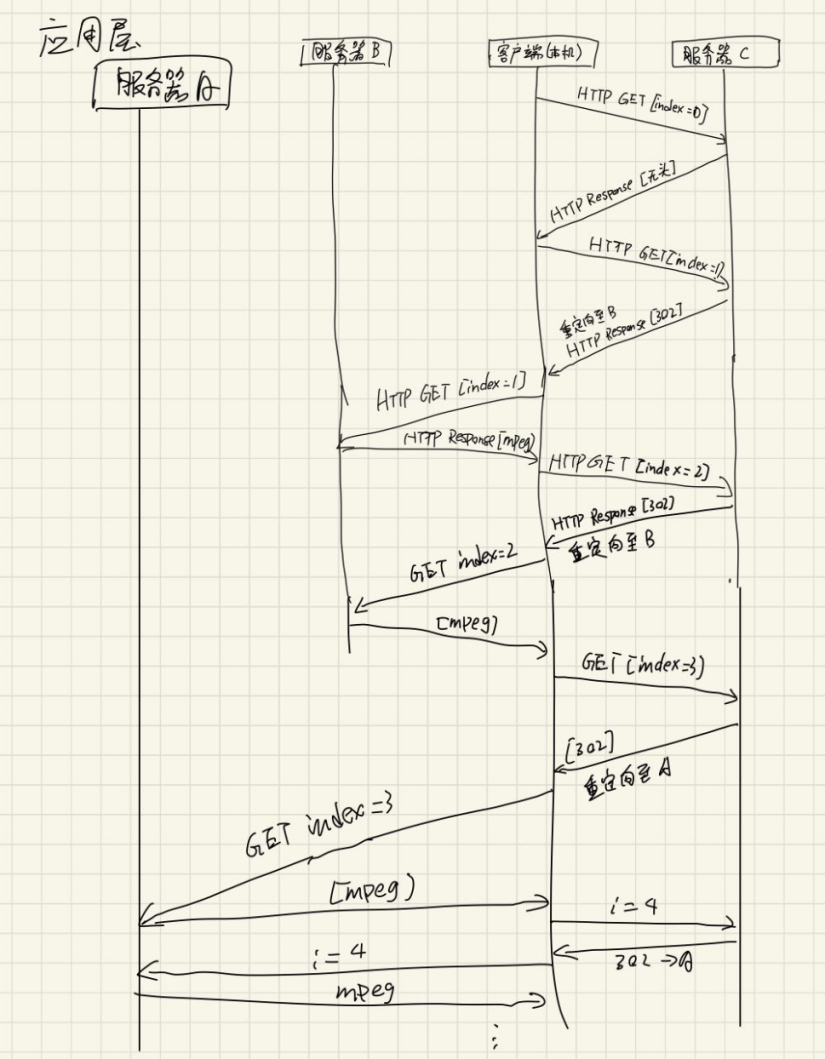 应用层
服务器A
服务器B
客户端(本机)
服务器 C
HTTP GET [index=0]
HTTP Response [无头]
HTTP GET[index=1]
重定向至B
HTTP Response [302]
HTTP GET [index=1]
HTTP Response[mpeg]
HTTP GET [index=2]
HTTP Response [302]
重定向至B
GET index=2
[mpeg]
GET [index=3]
[302]
重定向至A
GET index=3
[mpeg]
i=4
302→A
i=4
mpeg
⋮